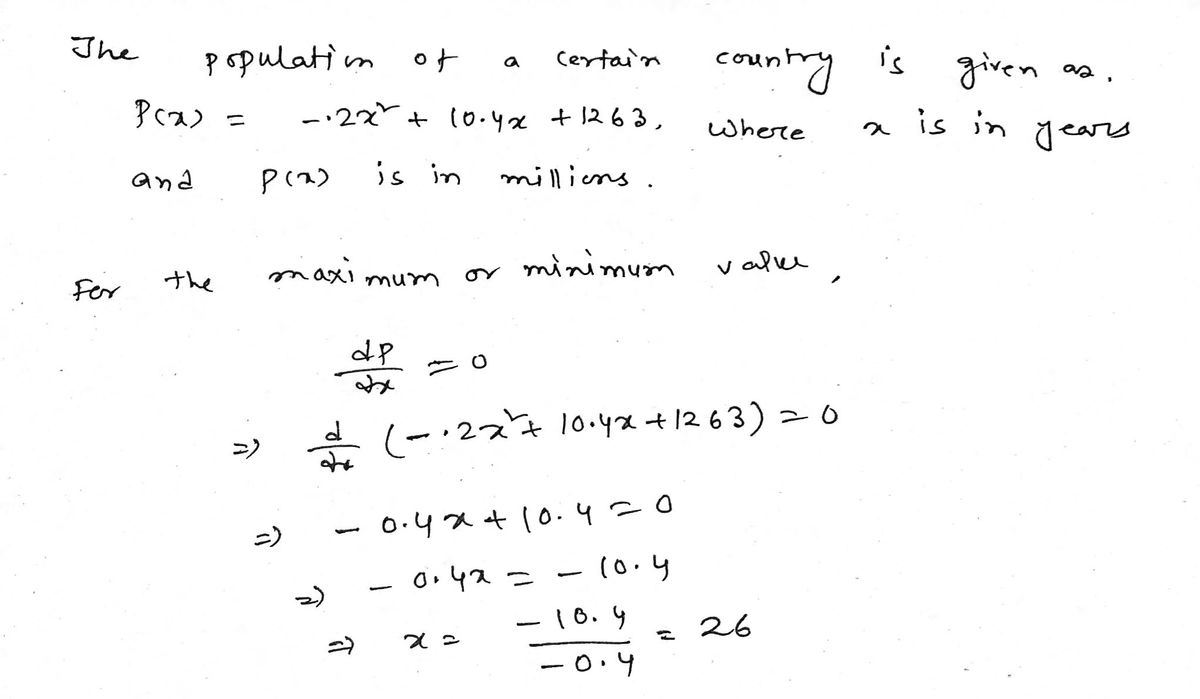 The population of a certain country is given as.
P(x) = -.2x² + 10.4x + 1263, where x is in years
and P(x) is in millions.
For the maximum or minimum value,
dP/dx = 0
=> d/dx (-.2x² + 10.4x + 1263) = 0
=> - 0.4x + 10.4 = 0
=> - 0.4x = - 10.4
=> x = -10.4/-0.4 = 26